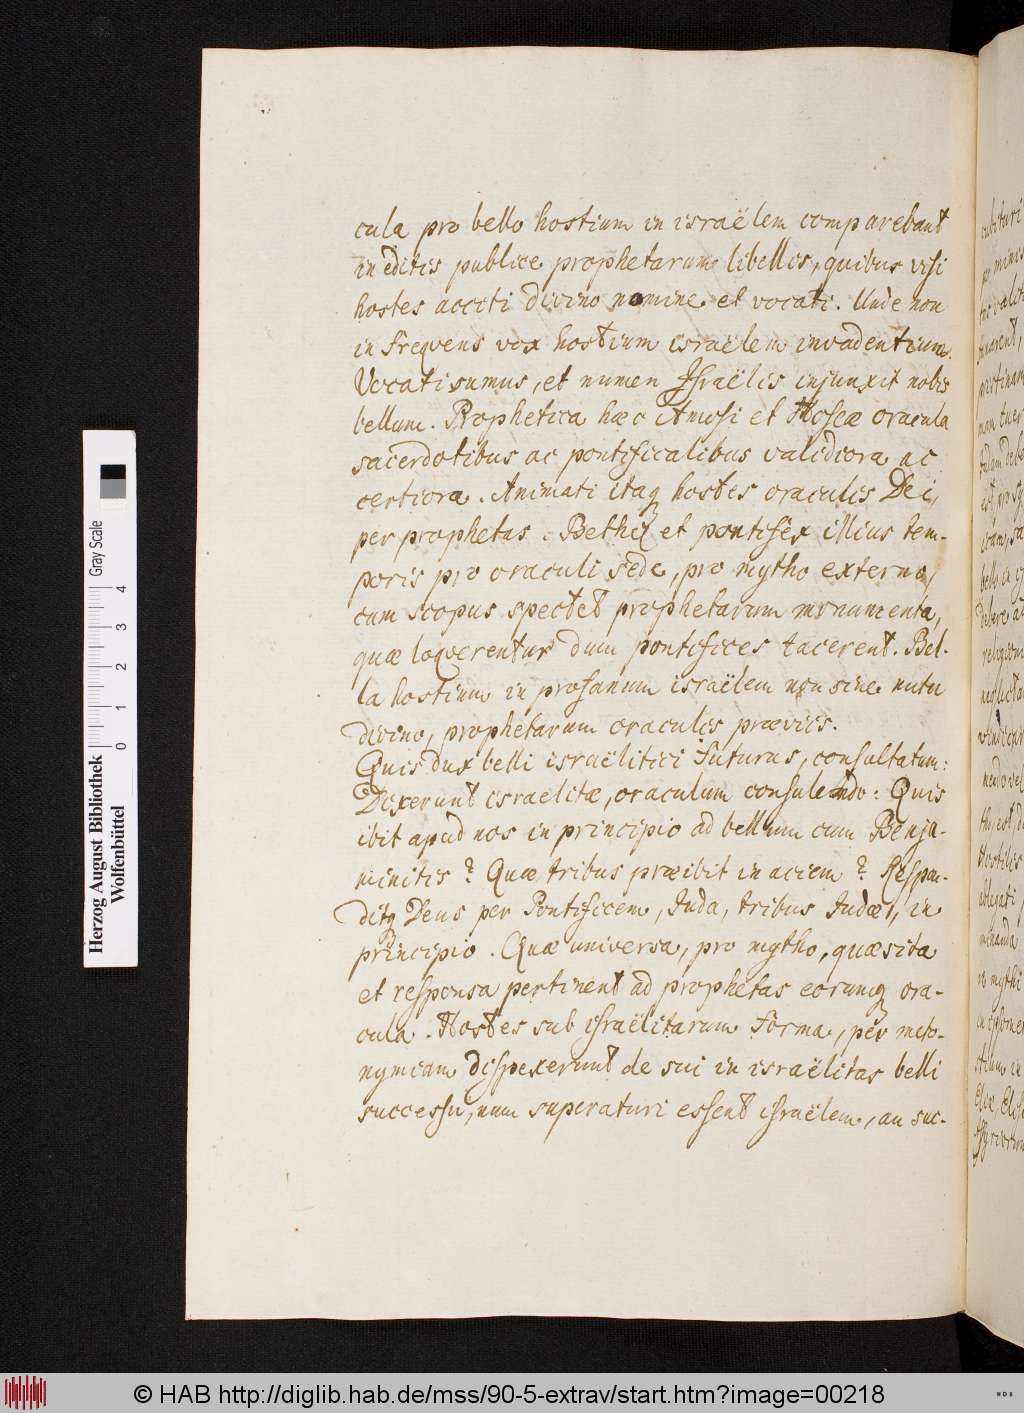 cula pro bello hostium in israëlem comparebant
in editis publice prophetarum libellis, quibus visi
hostes acciti divino nomine et vocati. Unde non
infreqvens vox hostium israëlem invadentium.
Vocati sumus, et numen Israëlis injunxit nobis
bellum. Prophetica hæc Amosi et Hoseæ oracula
sacerdotibus ac pontificalibus validiora ac
certiora. Animati itaq hostes oraculis Dei,
per prophetas. Bethel et pontifex illius tem-
poris pro oraculi sede, pro mytho externo,
cum scopus spectet prophetarum monumenta,
quæ loqverentur dum pontifices tacerent. Bel-
la hostium in profanum israëlem non sine nutu
divino, prophetarum oraculis præviis.
Quis dux belli israëlitici futurus, consultatum:
Dixerunt israelitæ, oraculum consulendo: Quis
ibit apud nos in principio ad bellum cum Benja-
minitis? Quæ tribus præibit in aciem? Respon-
ditq Deus per Pontificem, Juda, tribus Judæi, in
principio. Quæ universa, pro mytho, quæsita
et responsa pertinent ad prophetas eorumq ora-
cula. Hostes sub israëlitarum forma, per meto-
nymiam dispexerunt de sui in israëlitas belli
successu, num superaturi essent israëlem, an suc-
cubituri
Herzog August Bibliothek
Wolfenbüttel
Gray Scale
0 1 2 3 4
© HAB http://diglib.hab.de/mss/90-5-extrav/start.htm?image=00218